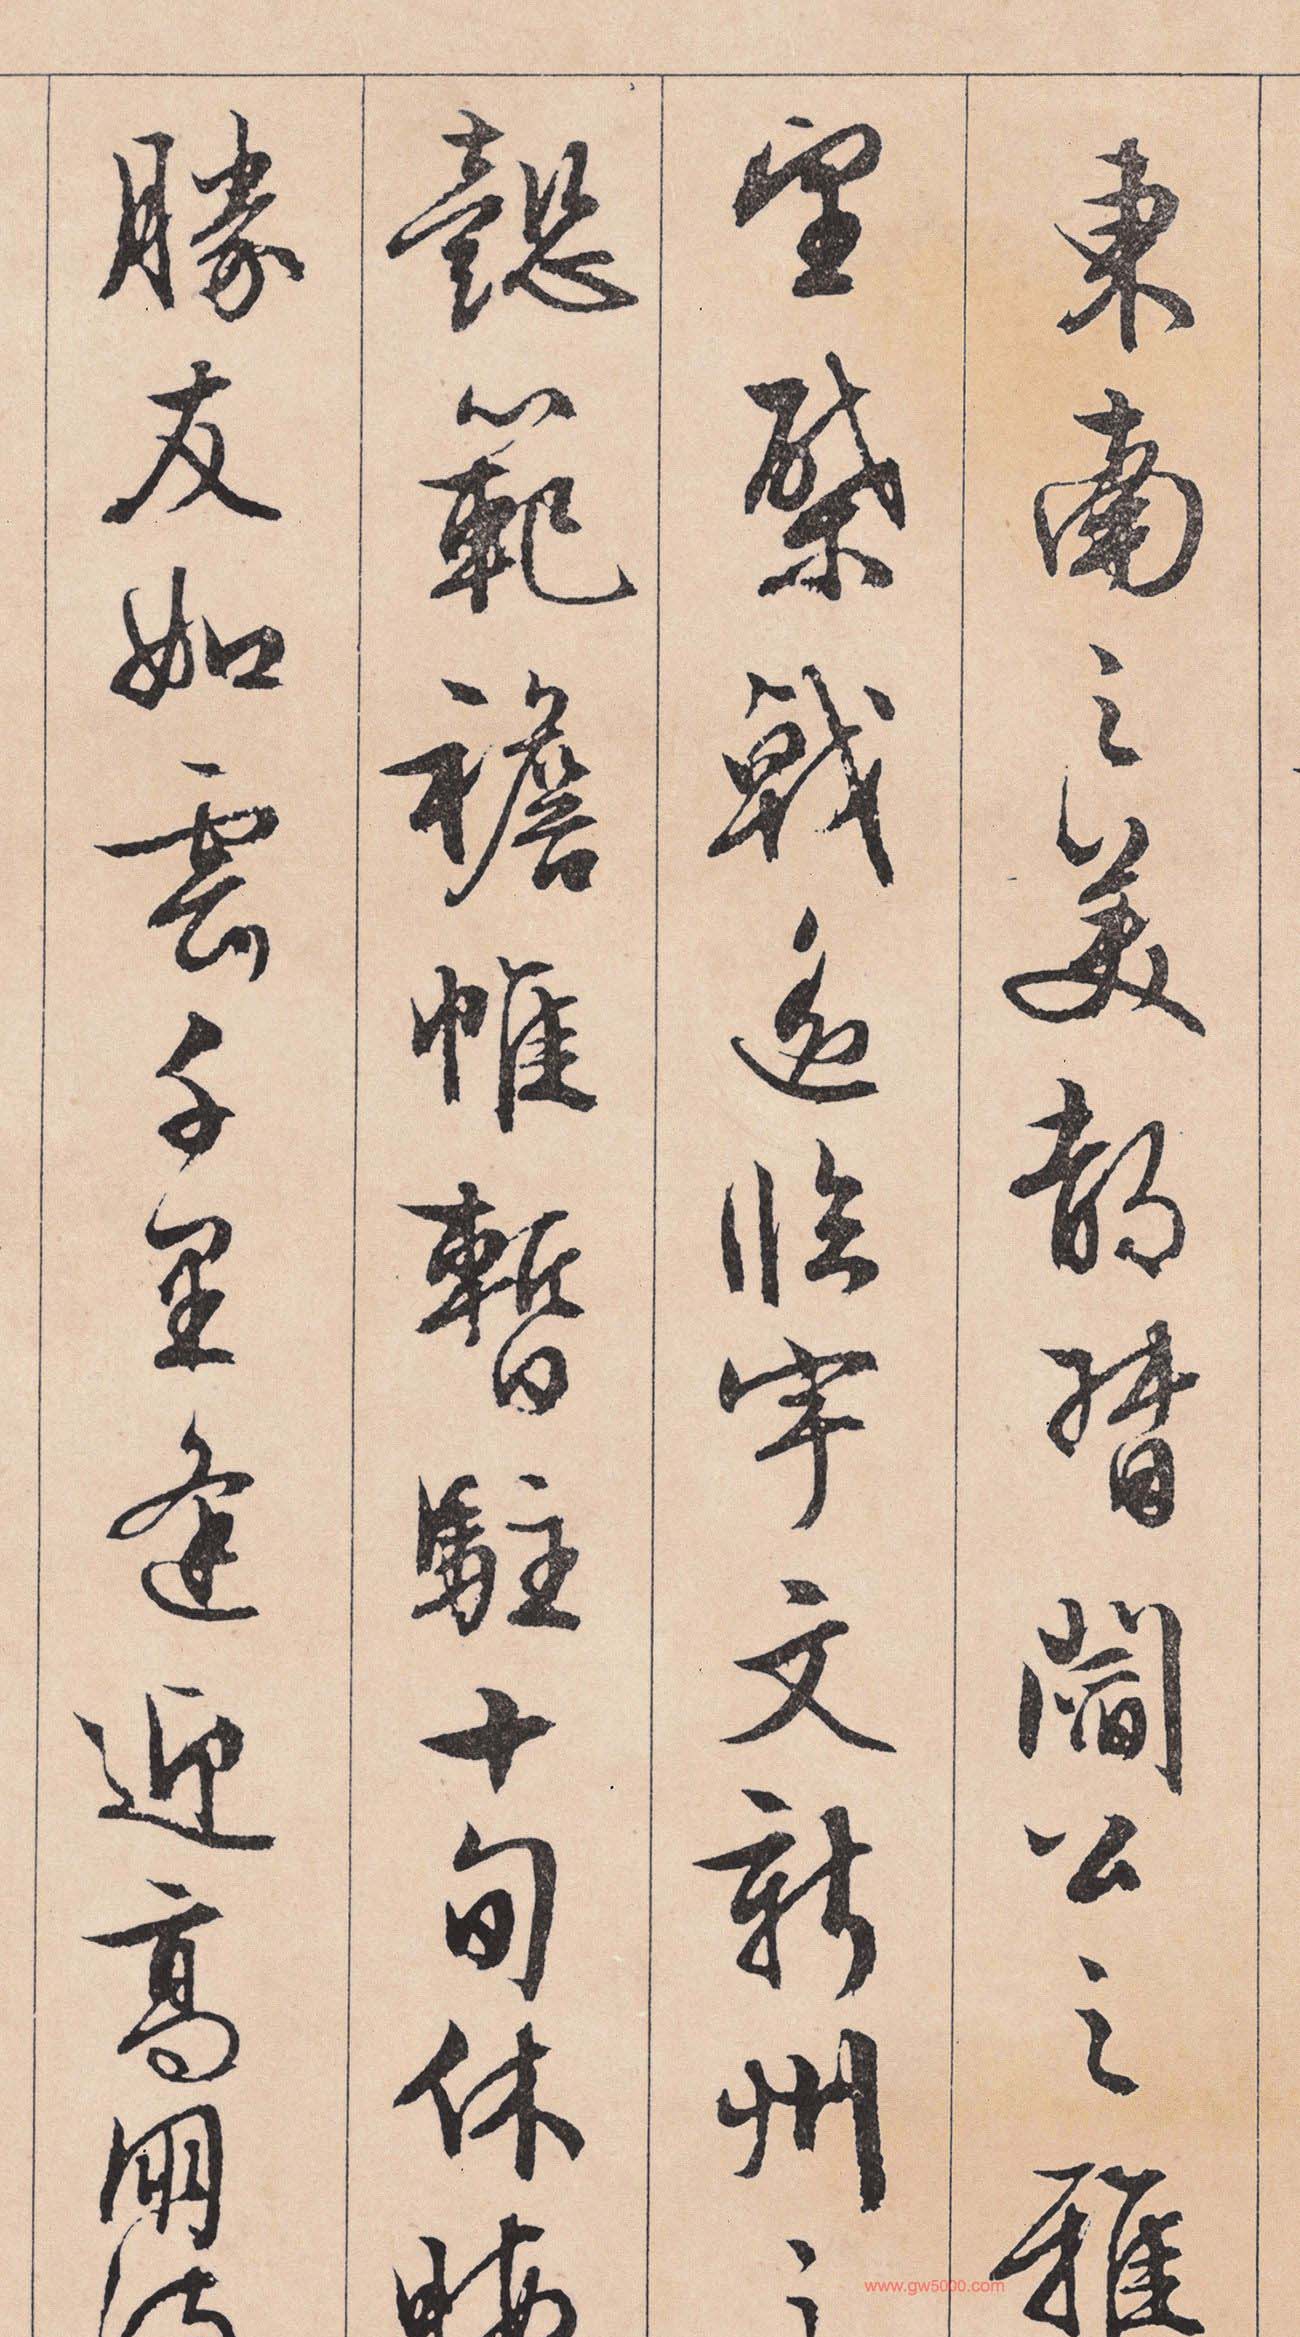 東南之美都督閻公之雅
望棨戟遙臨宇文新州之
懿範襜帷暫駐十旬休暇
勝友如雲千里逢迎高朋
www.gw5000.com